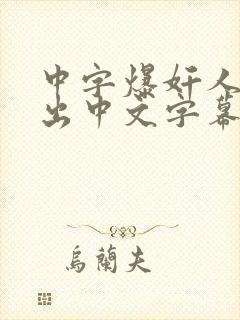 中字爆奸人
出中文字幕
烏蘭夫